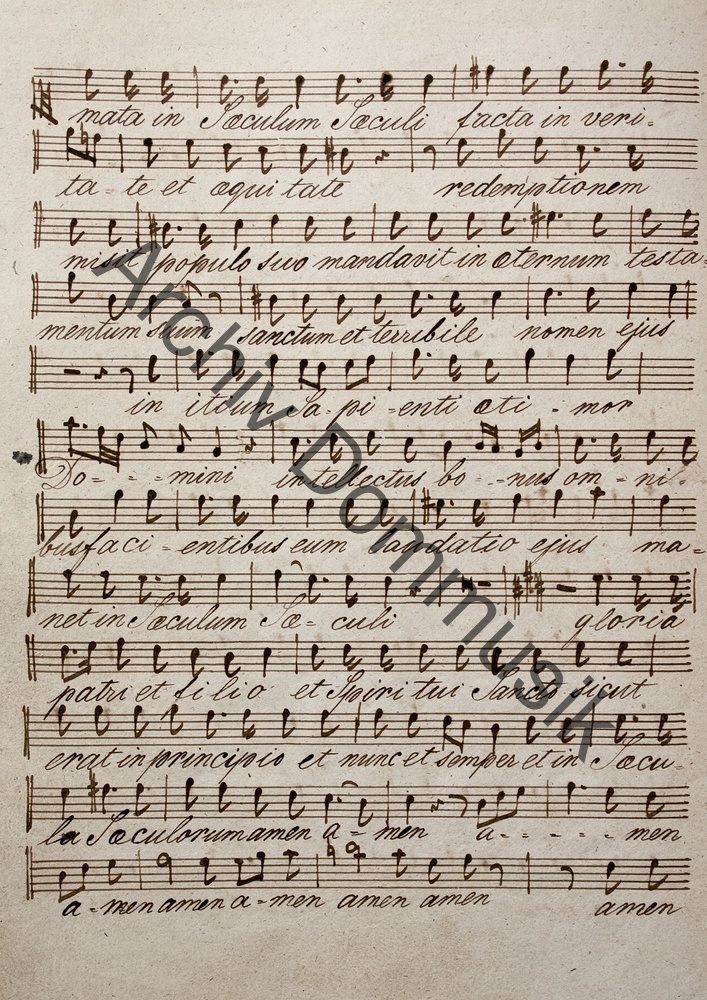 mata in Sæculum Sæculi facta in veri-
ta-te et æquitate redemptionem
misit populo suo mandavit in æternum testa-
mentum suum sanctum et terribile nomen ejus
in itium Sa-pi-enti æti-mor
Do---mini intellectus bo--nus om-ni-
bus faci-entibus eum laudatio ejus ma-
net in Sæculum Sæ-culi gloria
patri et filio et Spiritui Sancto sicut
erat in principio et nunc et semper et in Sæcu-
la Sæculorum amen a-men a-----men
a-men amen a-men amen amen amen
Archiv Dommusik